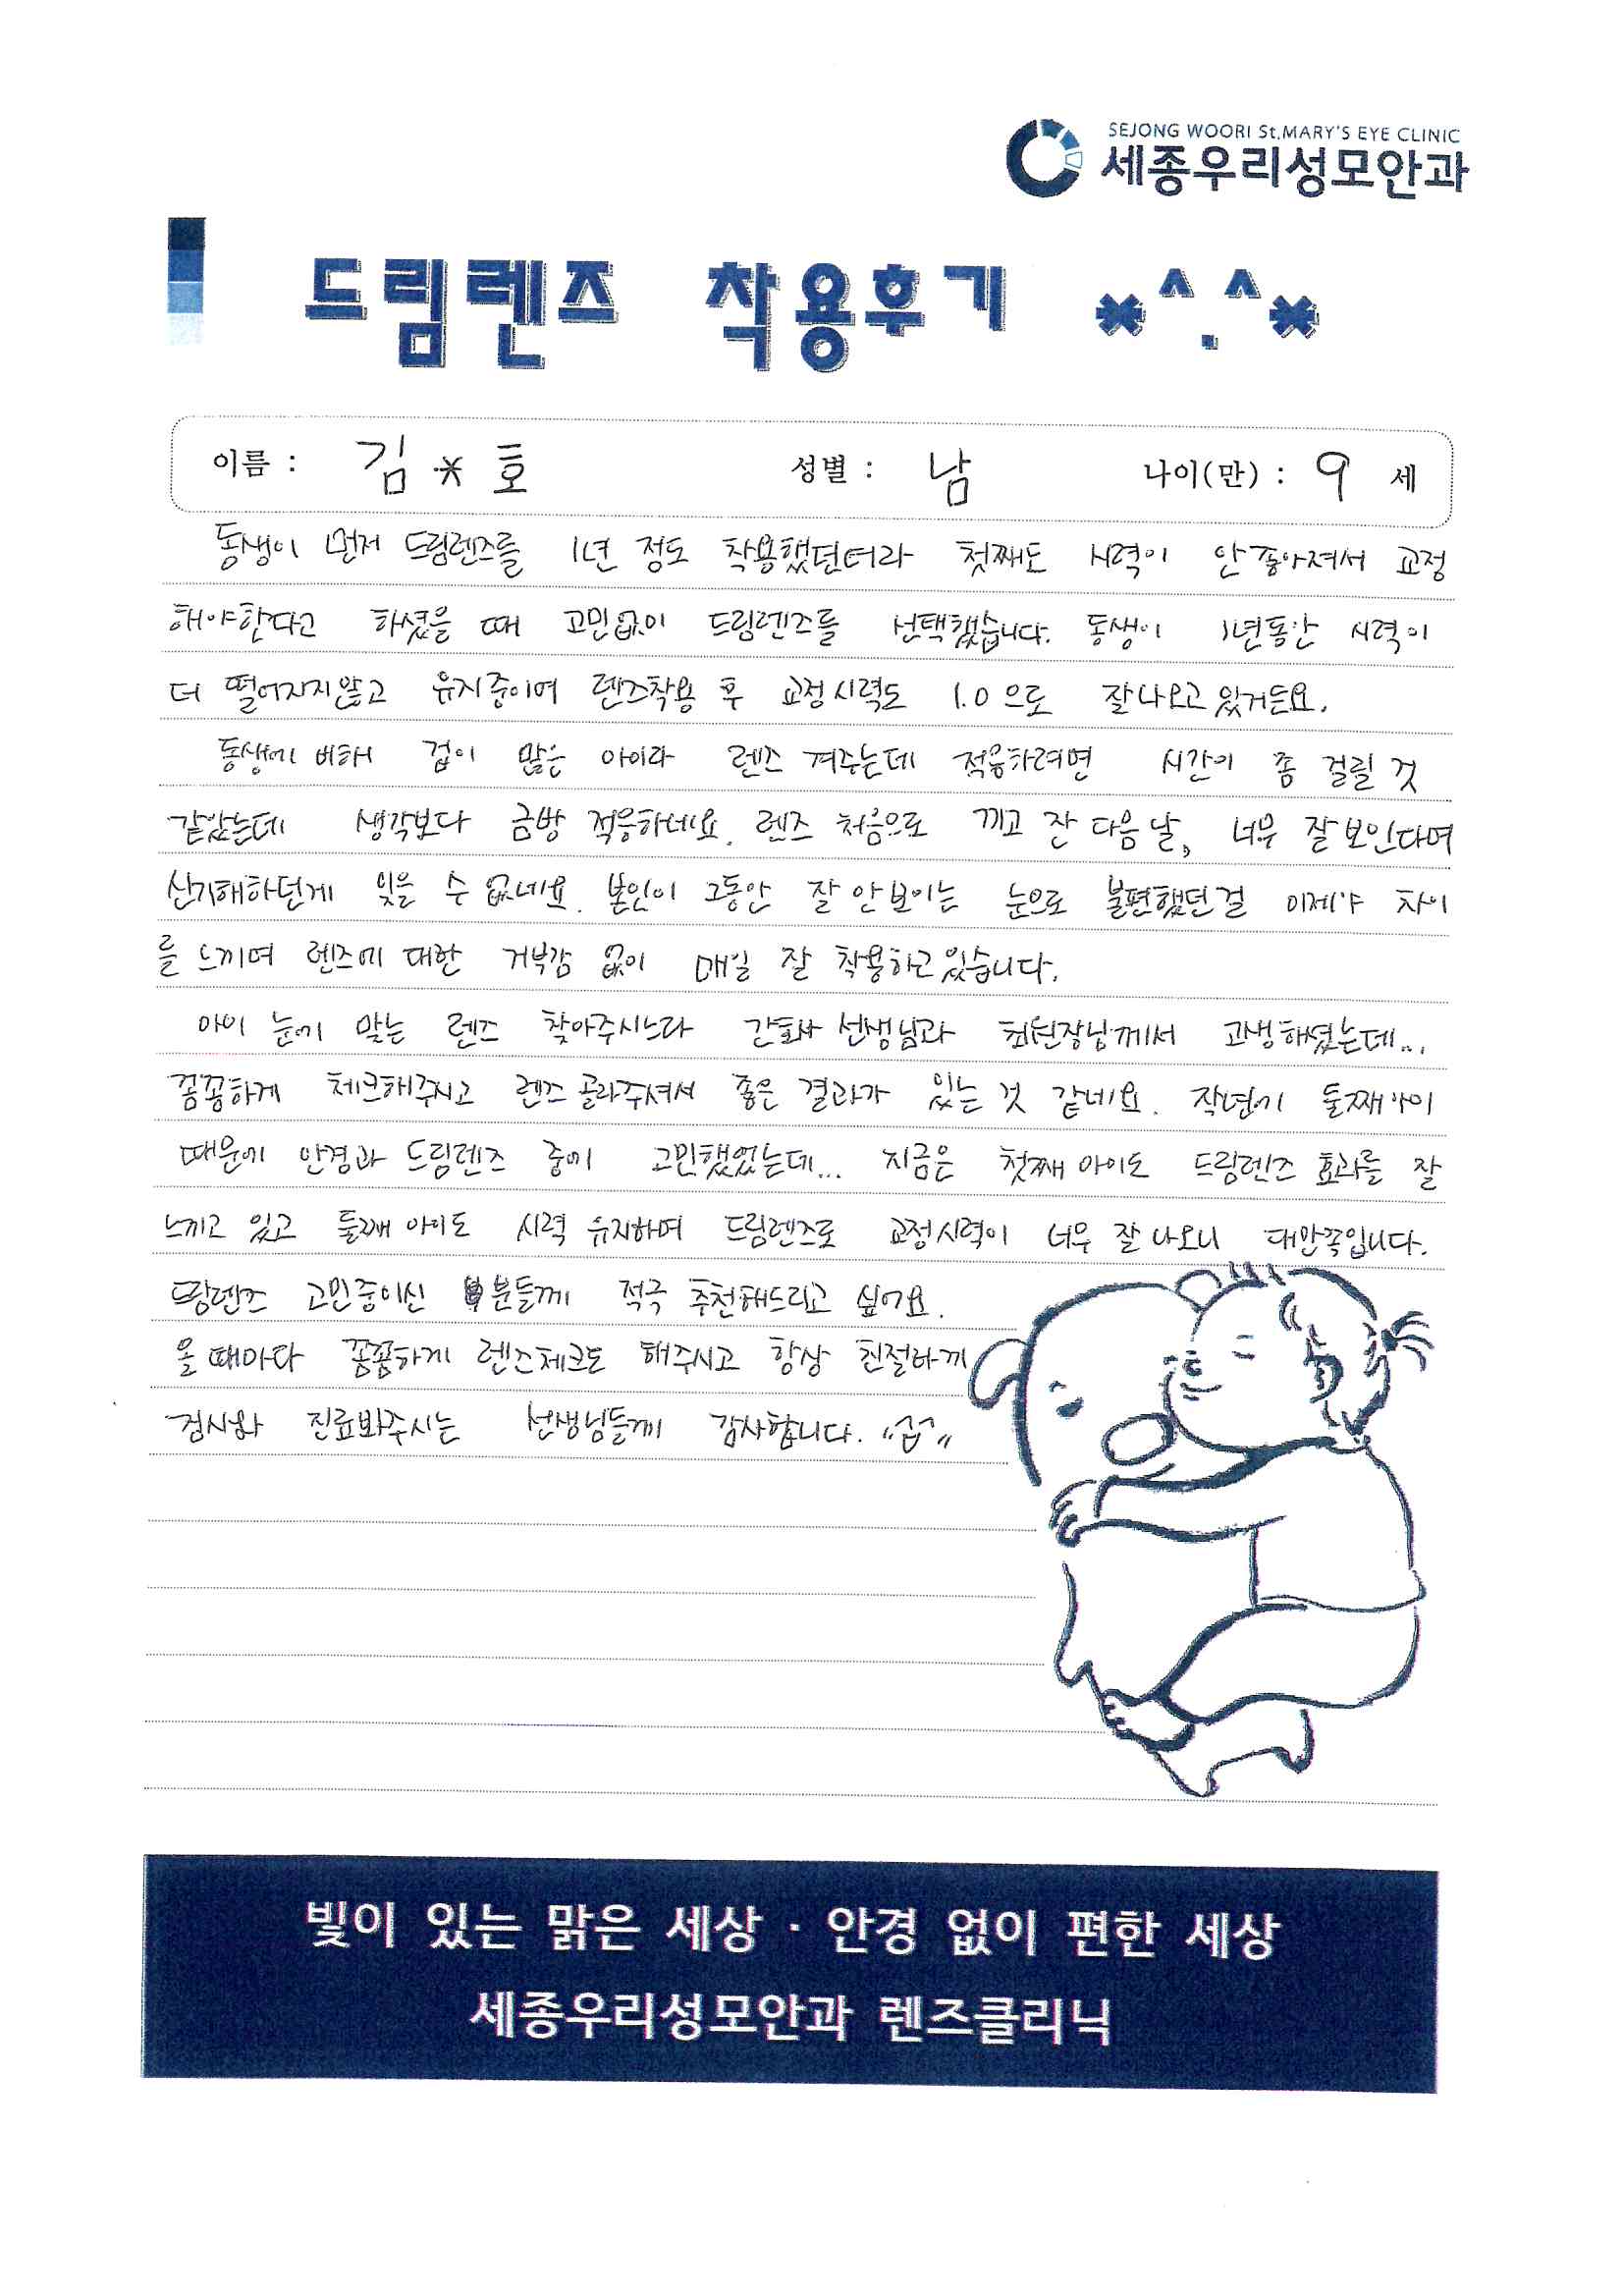 SEJONG WOORI St.MARY'S EYE CLINIC
세종우리성모안과
드림렌즈 착용후기 *^.^*
이름 : 김*호 성별 : 남 나이(만) : 9 세
동생이 먼저 드림렌즈를 1년 정도 착용했던터라 첫째도 시력이 안좋아져서 교정
해야한다고 하셨을 때 고민없이 드림렌즈를 선택했습니다. 동생이 1년동안 시력이
더 떨어지지않고 유지중이며 렌즈착용 후 교정시력도 1.0으로 잘나오고 있거든요.
동생에 비해 겁이 많은 아이라 렌즈 껴주는데 적응하려면 시간이 좀 걸릴 것
같았는데 생각보다 금방 적응하네요. 렌즈 처음으로 끼고 잔 다음날, 너무 잘보인다며
신기해하던게 잊을 수 없네요. 본인이 그동안 잘 안보이는 눈으로 불편했던걸 이제야 차이
를 느끼며 렌즈에 대한 거부감 없이 매일 잘 착용하고있습니다.
아이 눈에 맞는 렌즈 찾아주시느라 간호사 선생님과 최원장님께서 고생하셨는데...
꼼꼼하게 체크해주시고 렌즈 골라주셔서 좋은 결과가 있는 것 같네요. 작년에 둘째아이
때문에 안경과 드림렌즈 중에 고민했었는데... 지금은 첫째 아이도 드림렌즈 효과를 잘
느끼고 있고 둘째 아이도 시력 유지하며 드림렌즈로 교정시력이 너무 잘 나오니 대만족입니다.
드림렌즈 고민중이신 분들께 적극 추천해드리고 싶어요.
올 때마다 꼼꼼하게 렌즈체크도 해주시고 항상 친절하게
검사와 진료봐주시는 선생님들께 감사합니다. "꾸벅"
빛이 있는 맑은 세상 · 안경 없이 편한 세상
세종우리성모안과 렌즈클리닉